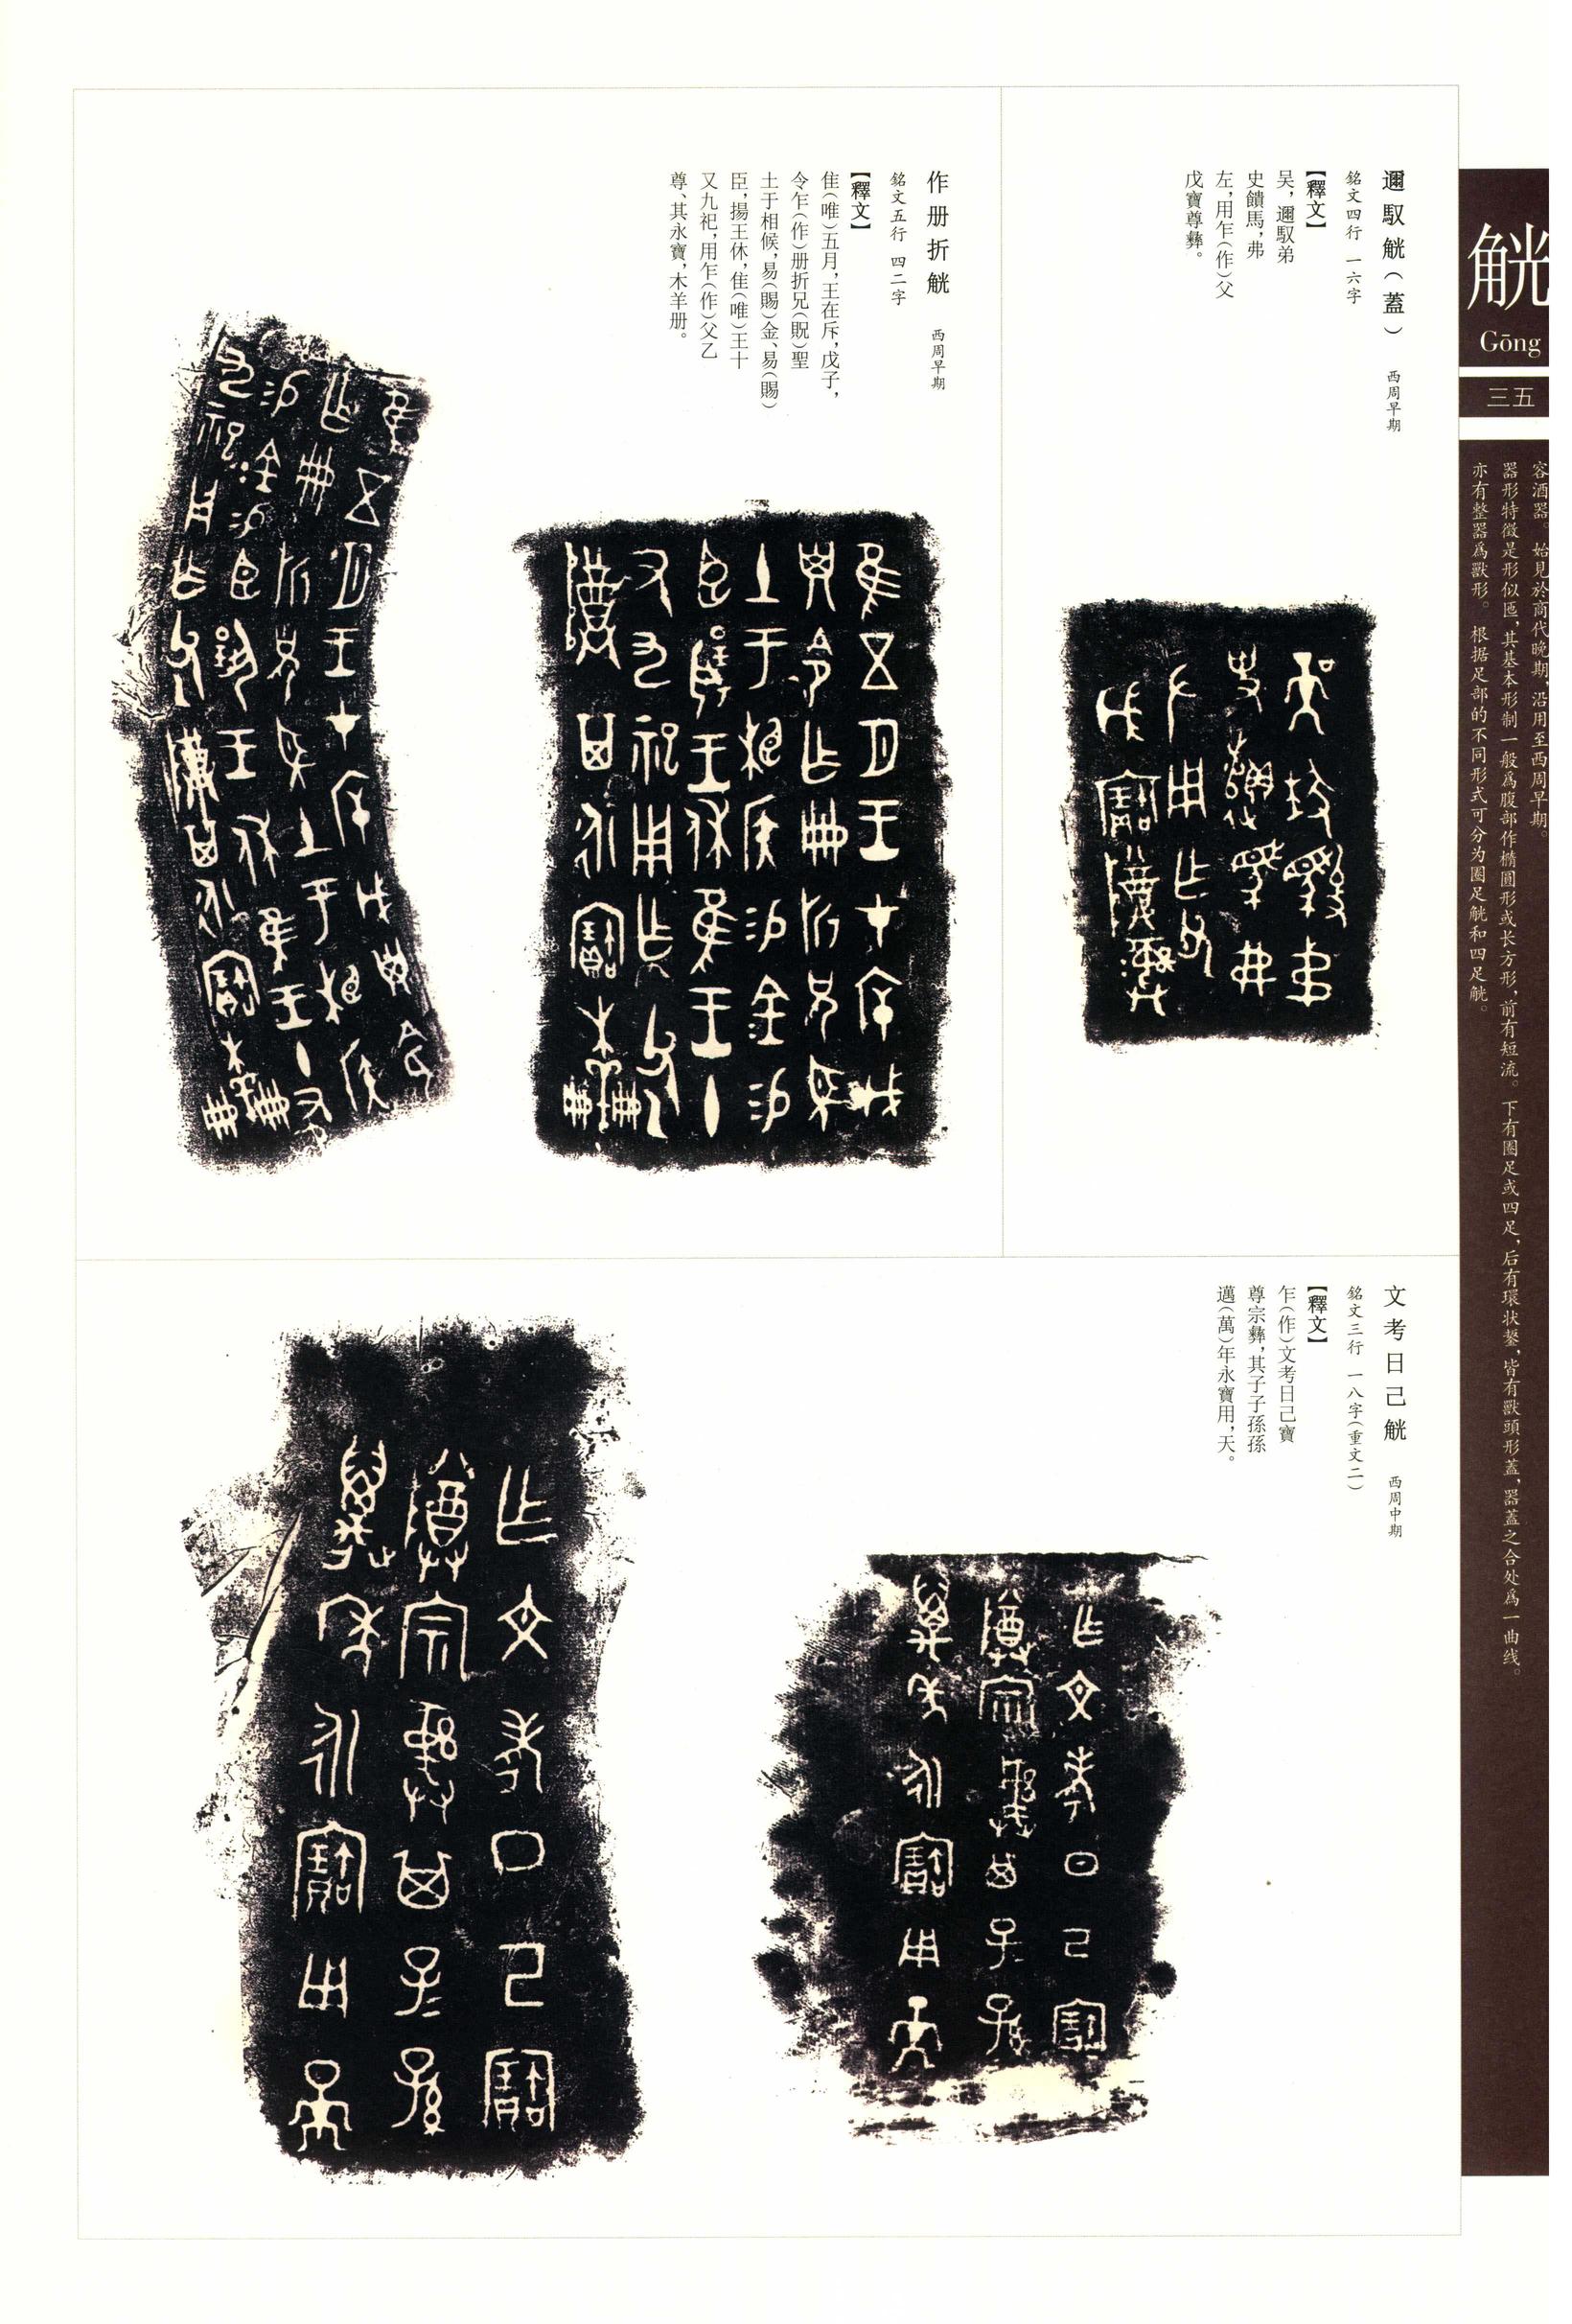 觥
Gōng
三五
容酒器。始見於商代晚期，沿用至西周早期。
器形特徵是形似匜，其基本形制一般爲腹部作橢圓形或长方形，前有短流。下有圈足或四足，后有環状鋬，皆有獸頭形蓋，器蓋之合处爲一曲线。
亦有整器爲獸形。根据足部的不同形式可分为圈足觥和四足觥。
邇馭觥（蓋） 西周早期
銘文四行 一六字
【釋文】
吴，邇馭弟
史饋馬，弗
左，用乍（作）父
戊寶尊彝。
作册折觥 西周早期
銘文五行 四二字
【釋文】
隹（唯）五月，王在斥，戊子，
令乍（作）册折兄（貺）聖
土于相候，易（賜）金、易（賜）
臣，揚王休，隹（唯）王十
又九祀，用乍（作）父乙
尊、其永寶，木羊册。
文考日己觥 西周中期
銘文三行 一八字（重文二）
【釋文】
乍（作）文考日己寶
尊宗彝，其子子孫孫
邁（萬）年永寶用，天。